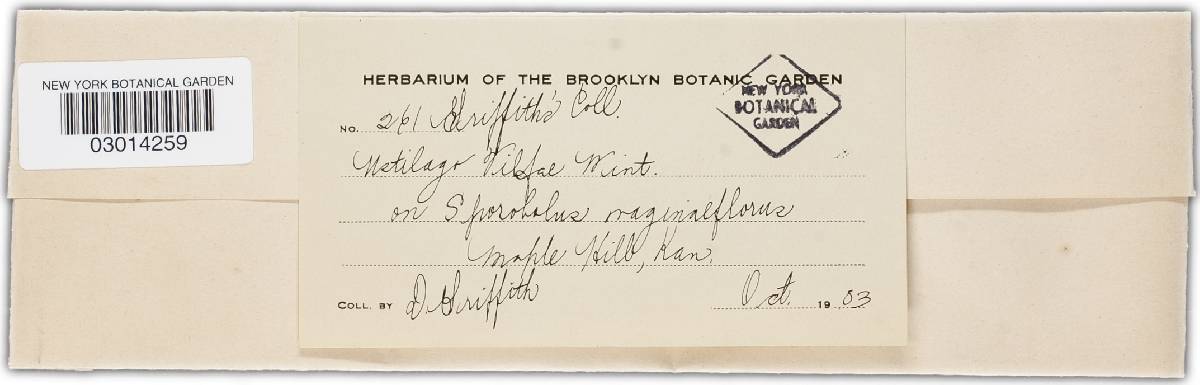 NEW YORK BOTANICAL GARDEN
03014259
HERBARIUM OF THE BROOKLYN BOTANIC GARDEN
NEW YORK
BOTANICAL
GARDEN
No. 261 Griffith's Coll.
Ustilago Vilfae Wint.
on Sporobolus vaginaeflorus
Maple Hill, Kan.
COLL. BY D. Griffith Oct. 1903